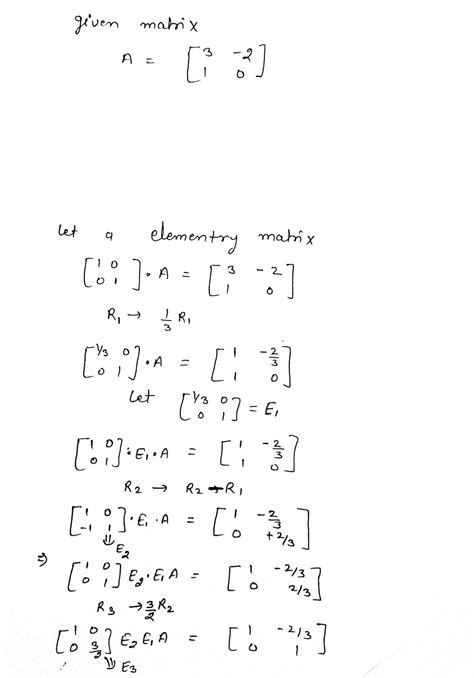 given matrix
A = [ 3 -2 ; 1 0 ]
let a elementry matrix
[ 1 0 ; 0 1 ] . A = [ 3 -2 ; 1 0 ]
R₁ → 1/3 R₁
[ 1/3 0 ; 0 1 ] . A = [ 1 -2/3 ; 1 0 ]
let [ 1/3 0 ; 0 1 ] = E₁
[ 1 0 ; 0 1 ] . E₁ . A = [ 1 -2/3 ; 1 0 ]
R₂ → R₂ - R₁
[ 1 0 ; -1 1 ] . E₁ . A = [ 1 -2/3 ; 0 +2/3 ]
⇓ E₂
⇒ [ 1 0 ; 0 1 ] E₂ . E₁ A = [ 1 -2/3 ; 0 2/3 ]
R₃ → 3/2 R₂
[ 1 0 ; 0 3/2 ] E₂ E₁ A = [ 1 -2/3 ; 0 1 ]
⇓ E₃